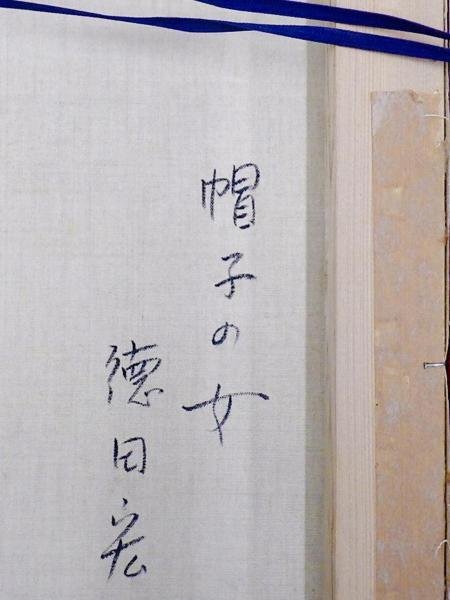 帽子の女
徳田宏